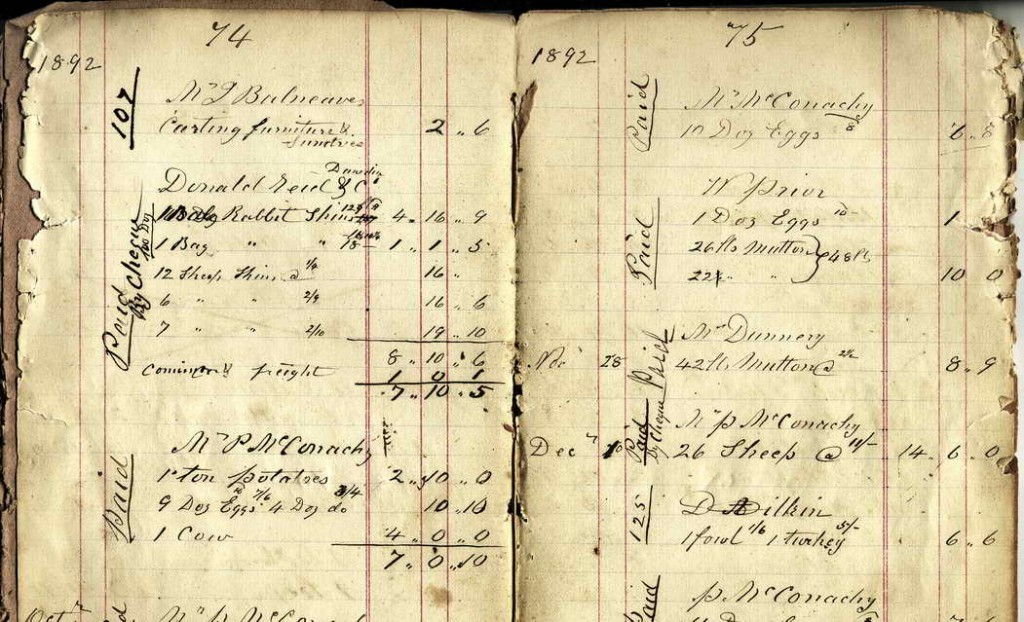 74
1892
107
Mr J Balneaves
Carting furniture &
Sundries
2 " 6
Dunedin
Donald Reid & Co
Paid
By Cheque
Rabbit Skins
4 " 16 " 9
1 Bag " "
1 " 1 " 5
12 Sheep Skins @ 1/4
16 "
6 " " 2/9
16 " 6
7 " " 2/10
19 " 10
8 " 10 " 6
freight
1 0 1
7 " 10 " 5
Paid
Mr P McConachy
1 ton potatoes
2 " 10 " 0
9 Doz Eggs 7/6 4 Doz do 3/4
10 " 10
1 Cow
4 " 0 " 0
7 " 0 " 10
Oct
Mr P McConachy
75
1892
Paid
Mr McConachy
10 Doz Eggs 8
6 " 8
Paid
W Prior
1 Doz Eggs 10
1
26 lbs Mutton
22 " "
@ 48 lbs
10 0
Paid
Mr Dunnery
28
42 lb Mutton @ 2½
8 " 9
Paid
By Cheque
Mr P McConachy
Dec
26 Sheep @ 11/-
14 " 6 " 0
125
D Aitkin
1 fowl 1/6 1 turkey 5/-
6 " 6
Paid
P McConachy